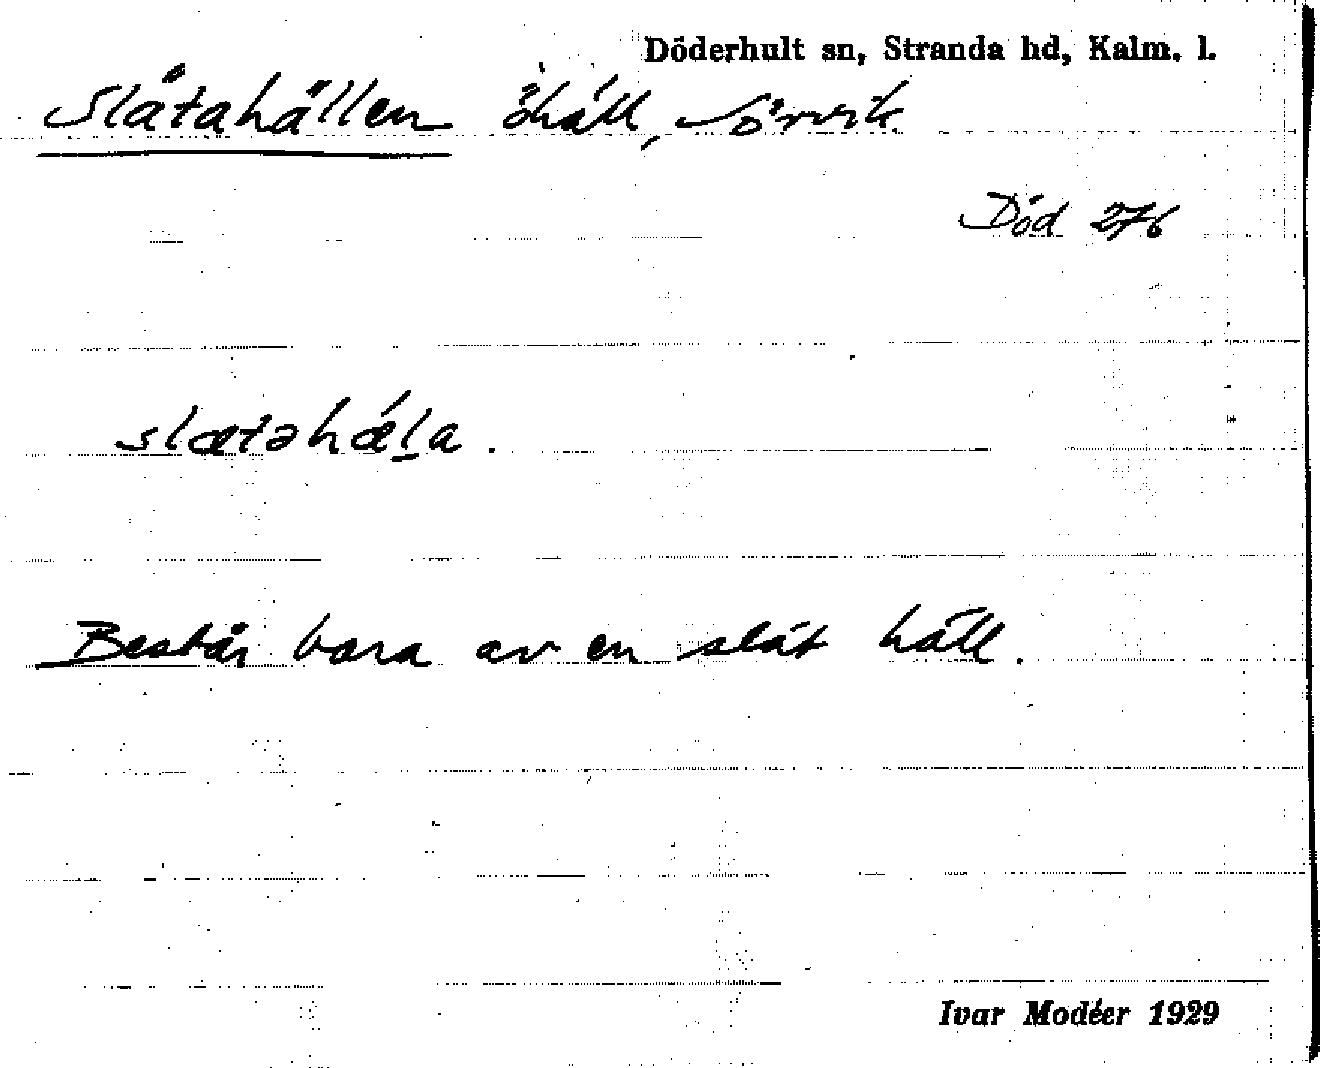 Döderhult sn, Stranda hd, Kalm. l.
Slätahällen öhäll, Sörvik
Död 276
slætəhǽl̲a.
Består bara av en slät häll.
Ivar Modéer 1929